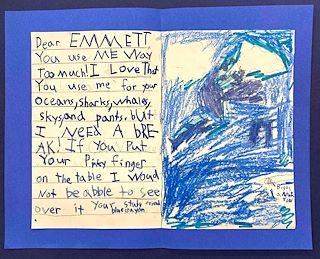 Dear EMMETT
You use ME Way
Too much! I Love That
You use me for your
Oceans, sharks, whales,
skys, and pants, but
I NEED A bRE
AK! If You Put
Your Pinky finger
on the table I Woud
Not be abble to see
over it Your, stuby friend
blue crayon